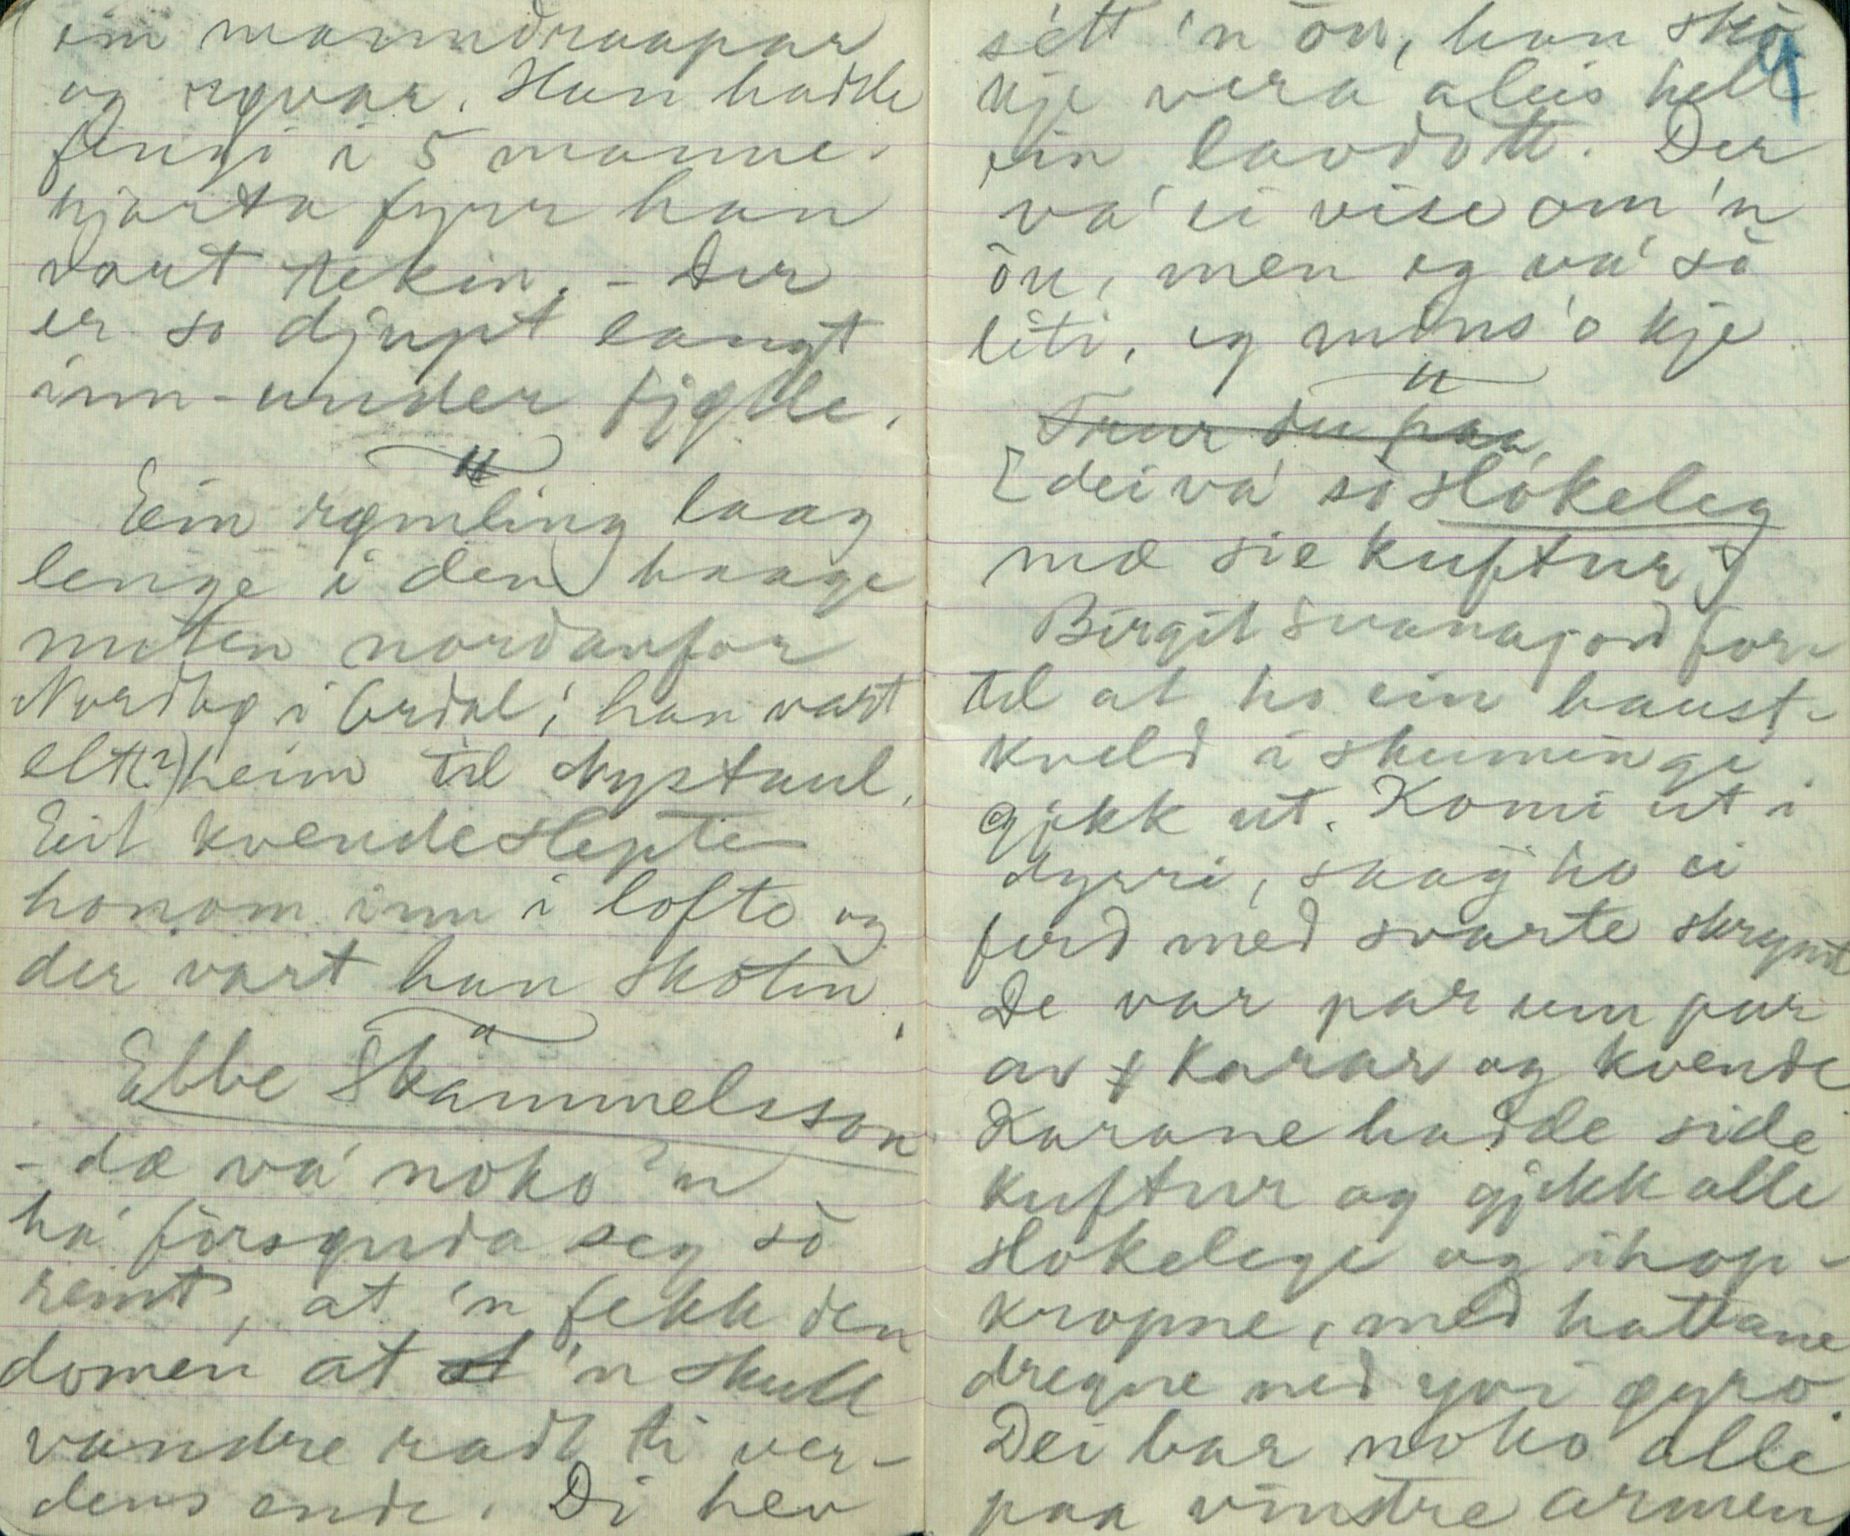 ein manndraapar
og røvar. Han hadde
fengi i 5 manne-
hjarta fyrr han
vart tekin. – Der
er so djupt langt
inn-under fjølle.
"
Ein rømling laag
lenge i den haage
nuten nordanfor
Nordbø i Ordal; han vart
elt(?) heim til Nystaul.
Eit kvende slepte
honom inn i lofte og
der vart han skoten.
"
Ebbe Skammelsson
– dæ va' noko 'n
ha' försynda seg sò
reint, at 'n fekk den
domen at 'n skull
vandre radt ti ver-
dens ende. Di hev
sétt 'n òu, han skò
kje vera aleis hell
ein lavdott. Der
va' ei vise om 'n
òu, men eg va' sò
liti, eg minns'o kje
"
Trur du paa
[dei va' sò slokeleg
mæ sie kuftur]
Birgit Svanajord for-
tel at ho ein haust-
kveld i skumingi
gjekk ut. Komi ut i
dyrri, saag ho ei
ferd med svarte skrymt
De var par um par
av karar og kvende
Karane hadde side
kuftur og gjekk alle
slokelege og ihop-
kropne, med hattane
dregne ned yvi øyro.
Dei bar noko alle
paa vinstre armen
4